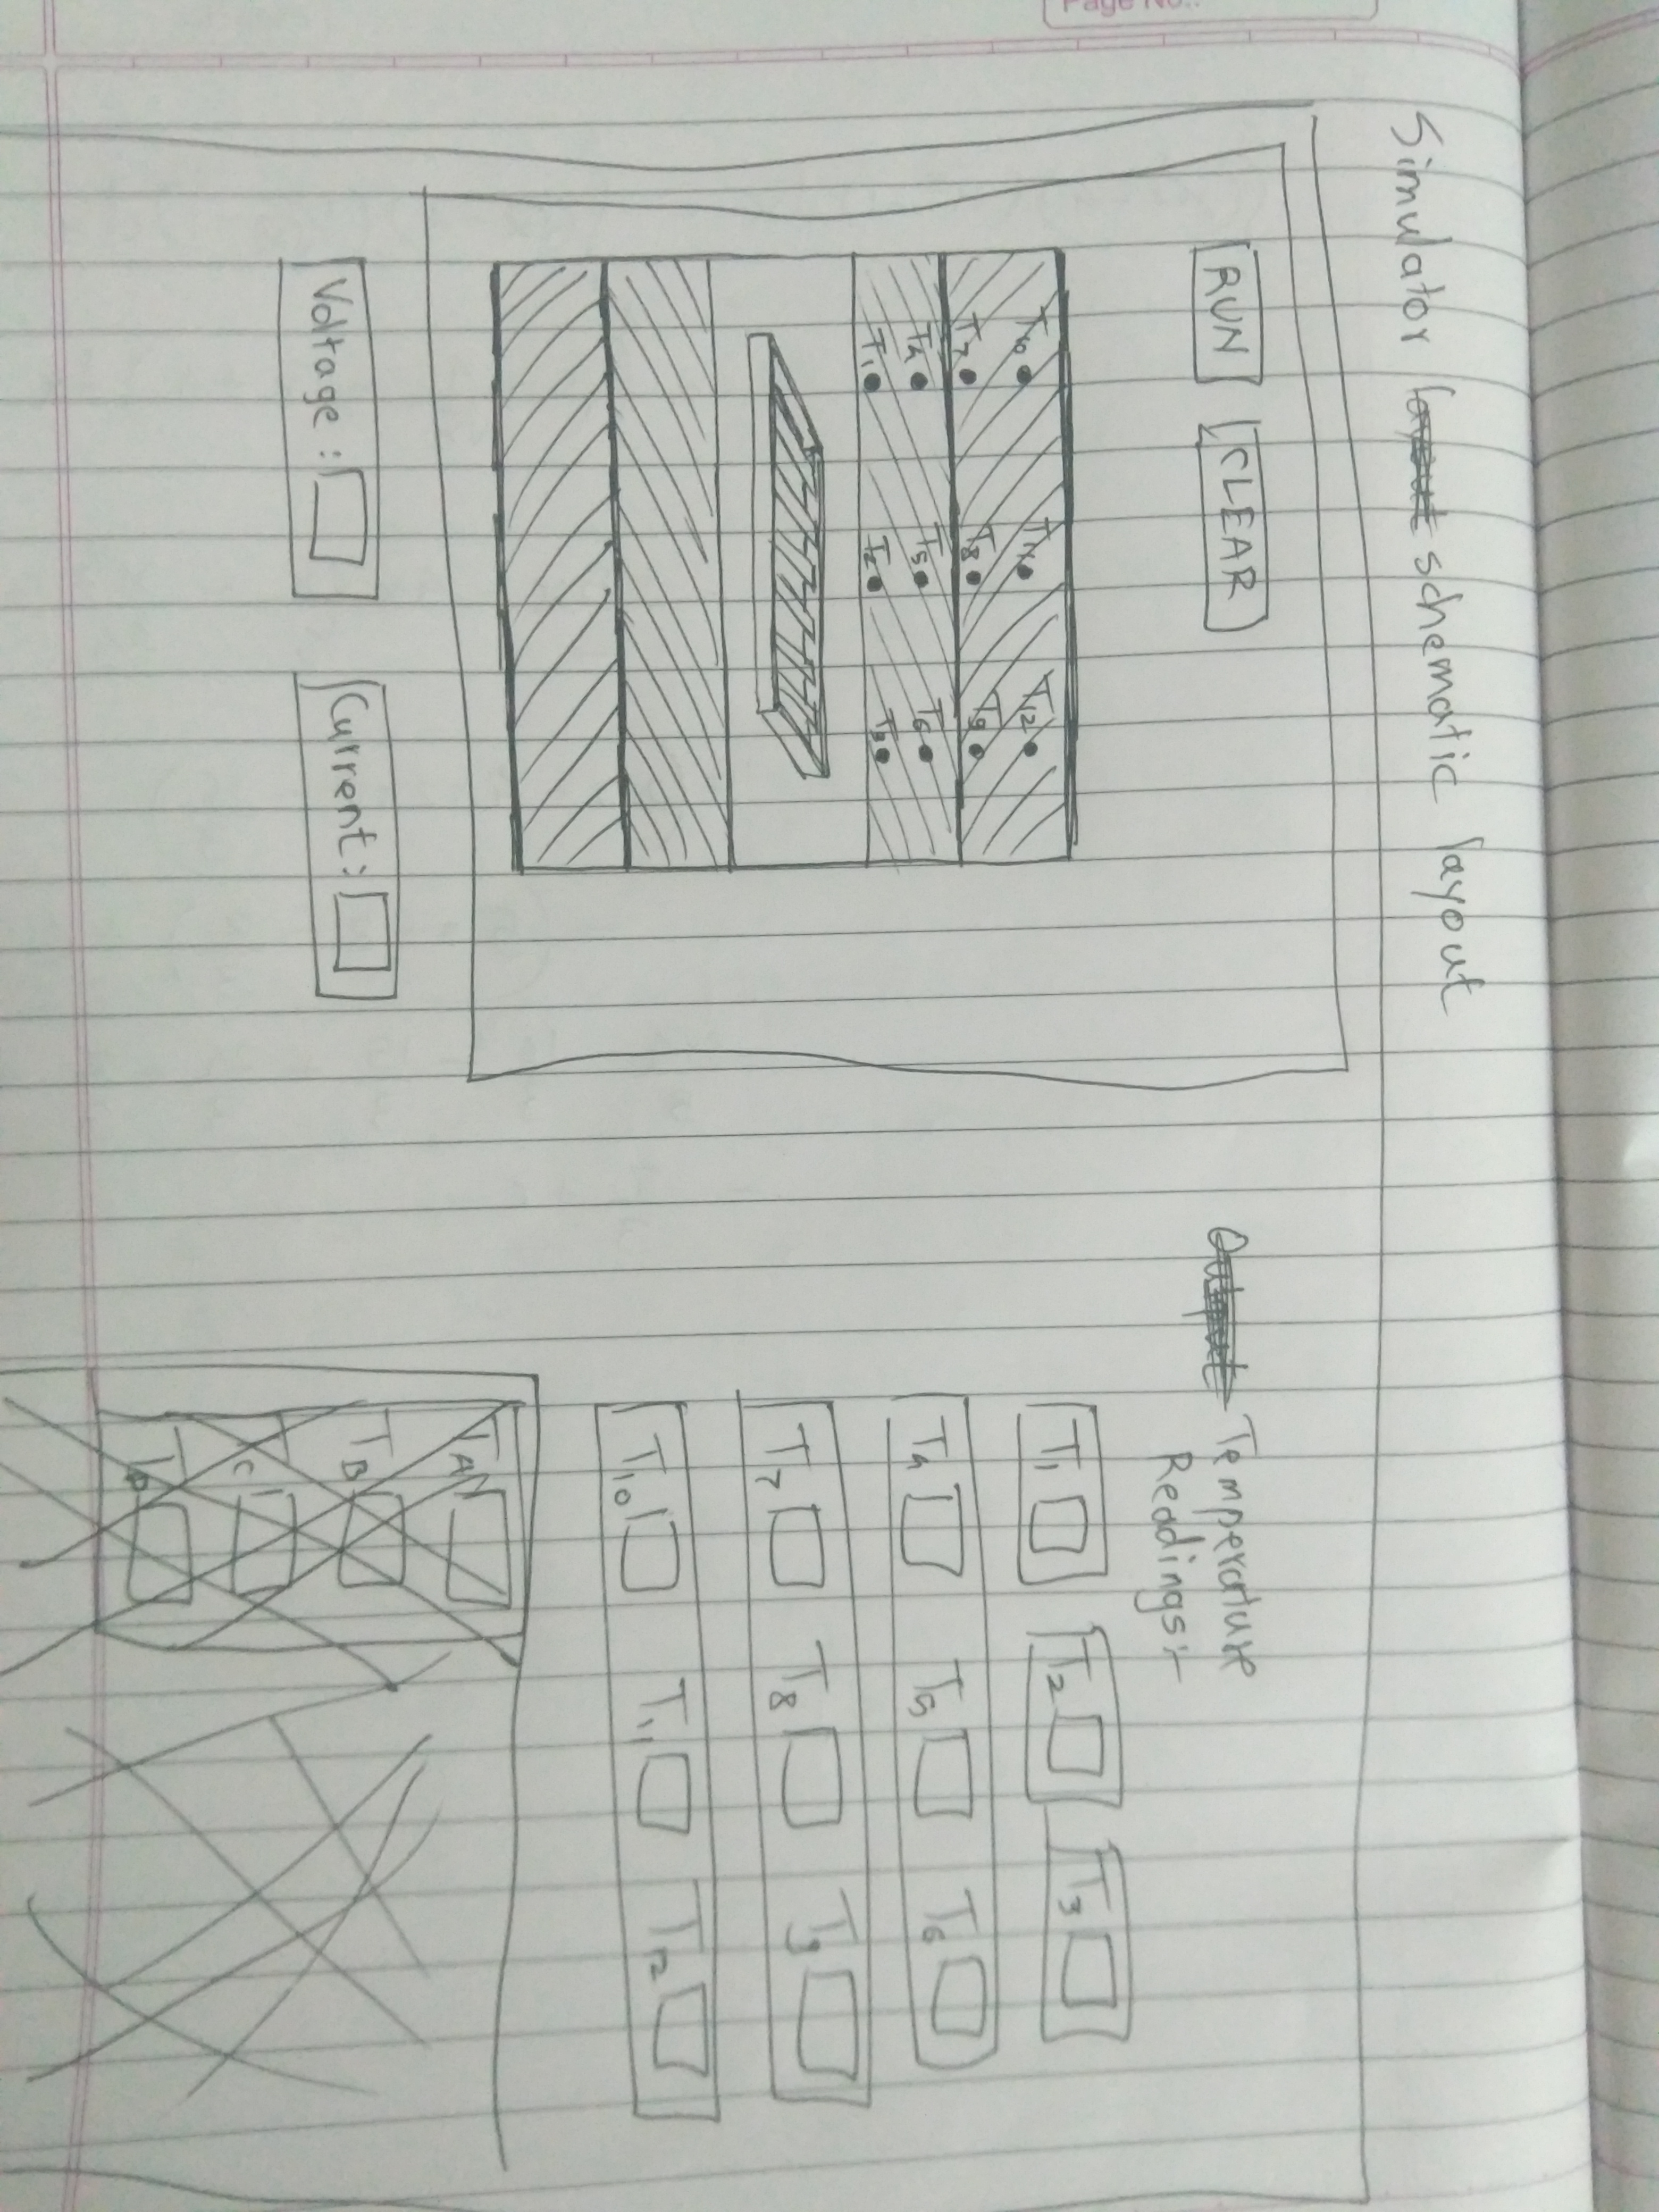 Page No.:
Simulator schematic layout
RUN CLEAR
T10 T11 T12
T7 T8 T9
T4 T5 T6
T1 T2 T3
Voltage :
Current :
Temperature
Readings:-
T1 T2 T3
T4 T5 T6
T7 T8 T9
T10 T11 T12
TA
TB
TC
TD